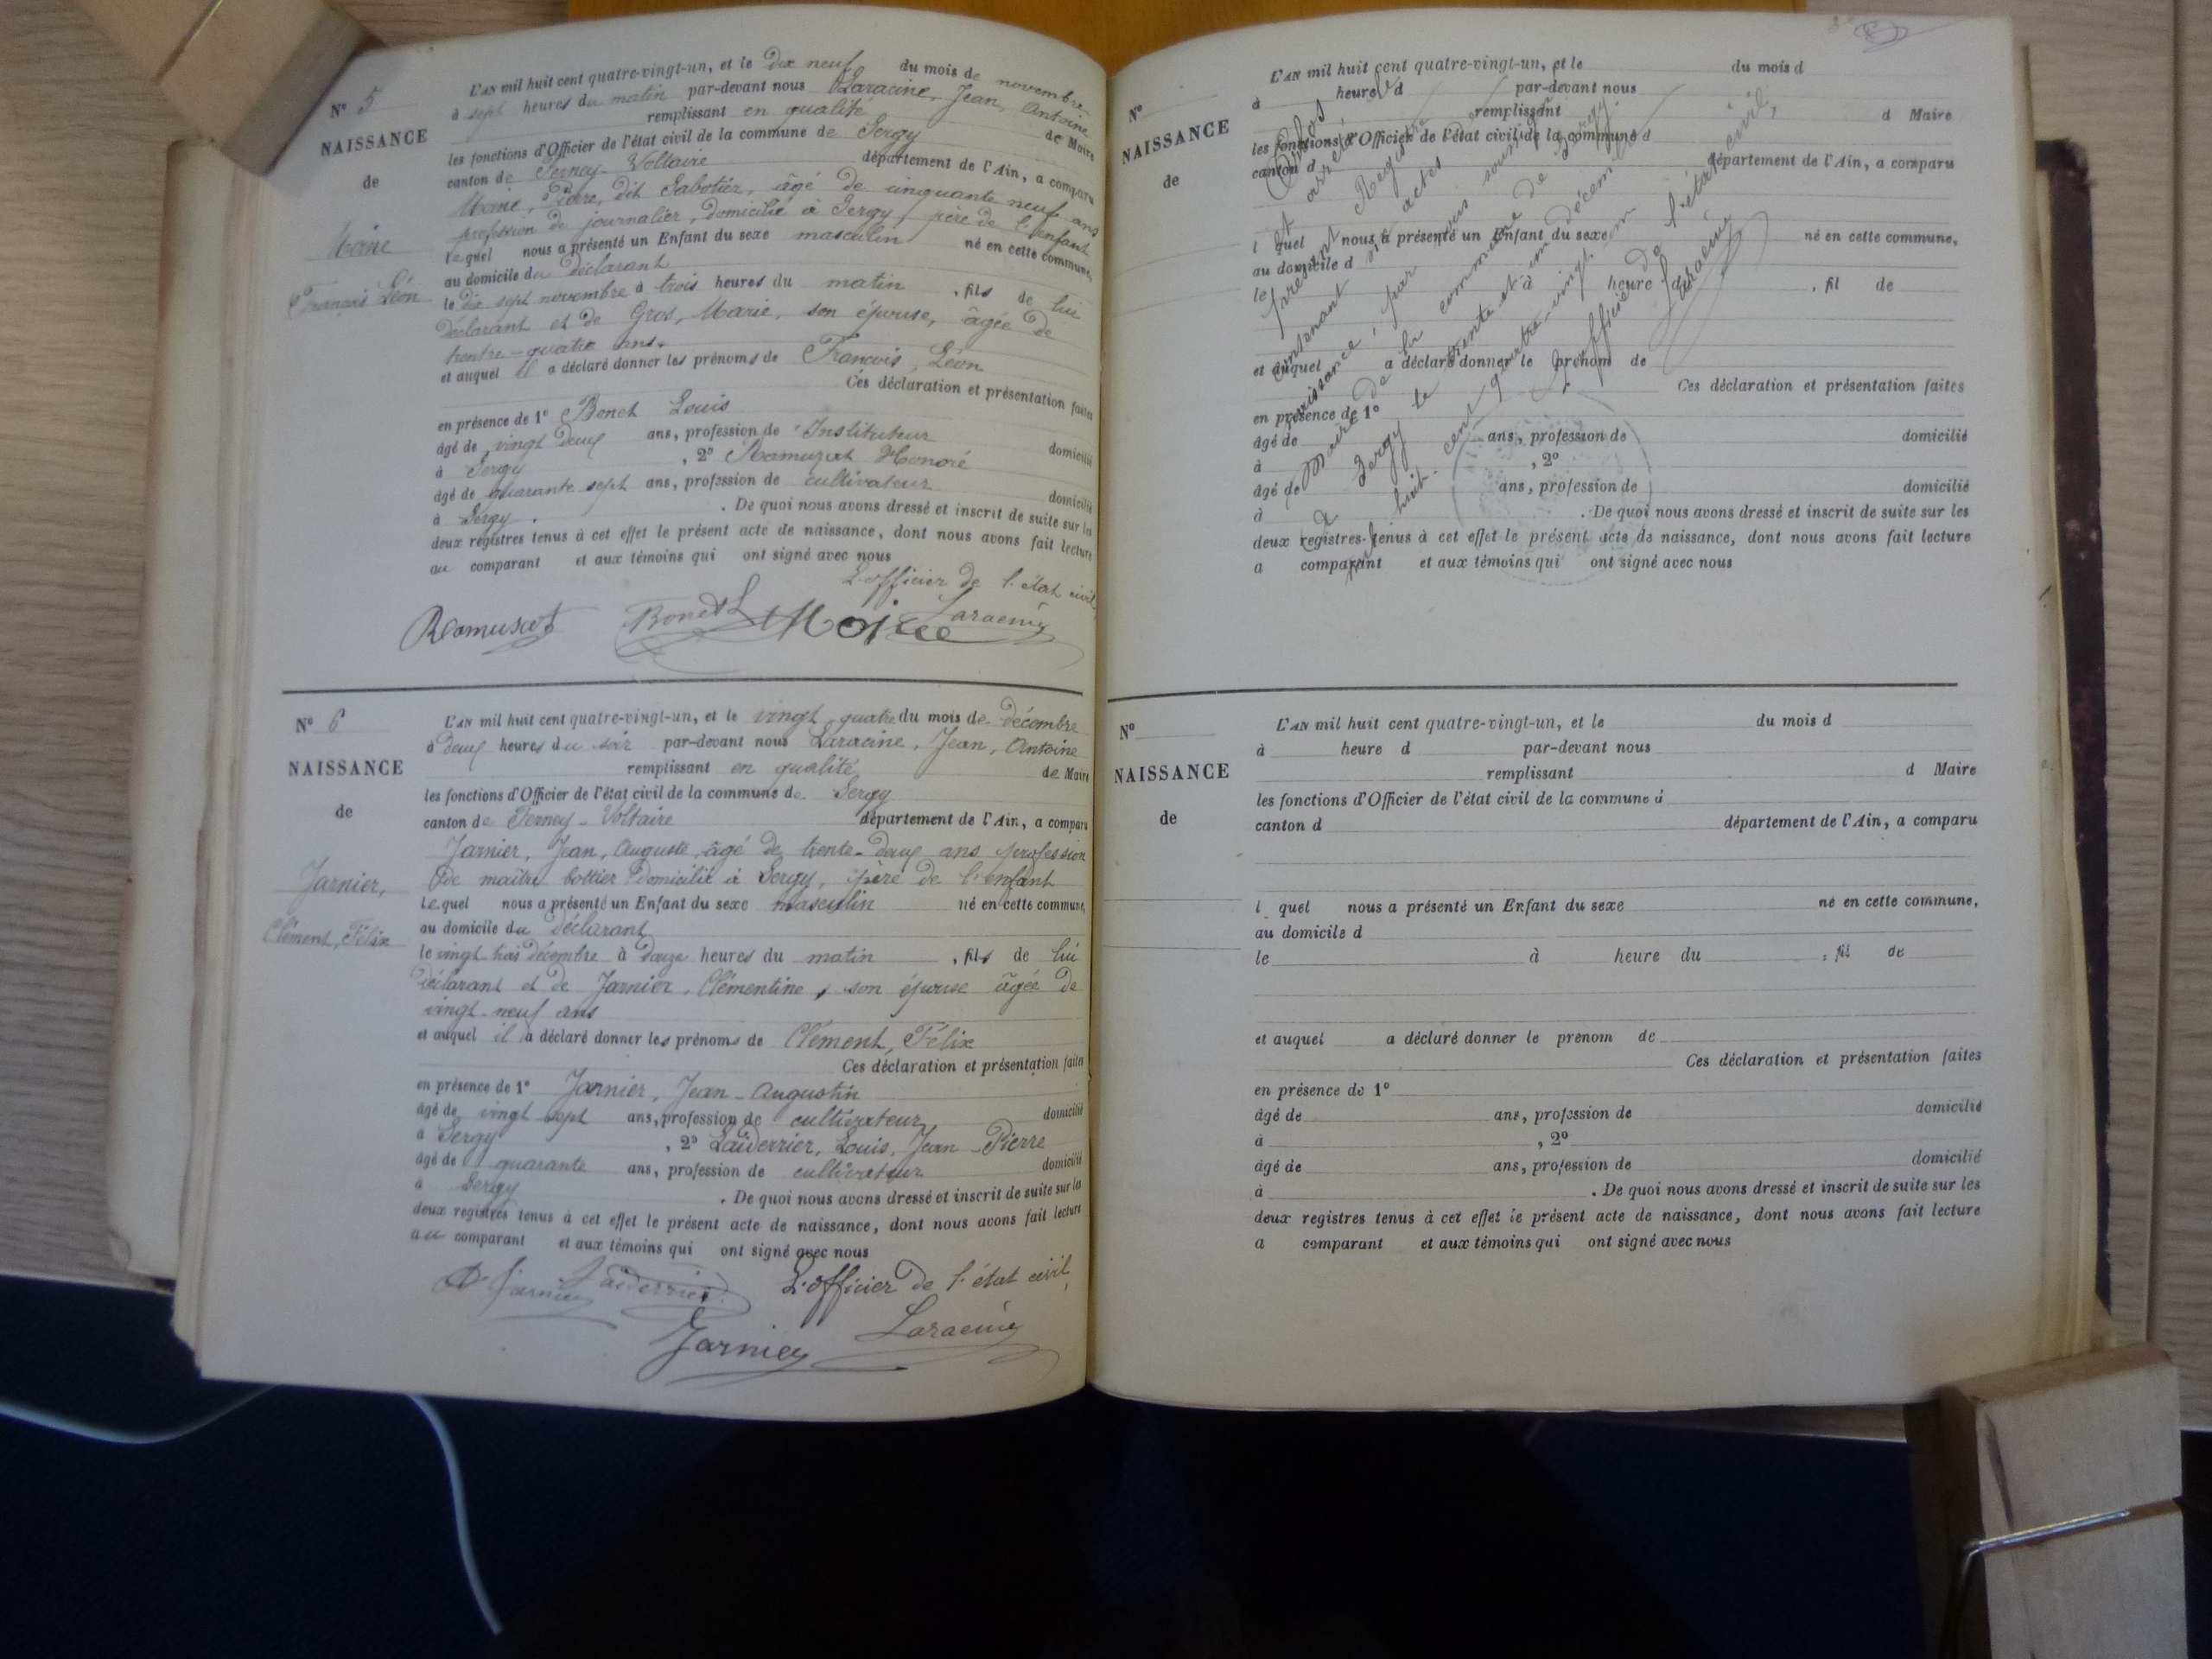 N° 5
NAISSANCE
de
Moine
François Léon
L'AN mil huit cent quatre-vingt-un, et le dix neuf du mois de novembre
à sept heures du matin par-devant nous Laracine, Jean, Antoine
remplissant en qualité de Maire
les fonctions d'Officier de l'état civil de la commune de Sergy
canton de Ferney-Voltaire département de l'Ain, a comparu
Moine, Pierre, dit Sabotier, âgé de cinquante neuf ans
profession de journalier, domicilié à Sergy, père de l'enfant
lequel nous a présenté un Enfant du sexe masculin né en cette commune,
au domicile du déclarant
le dix sept novembre à trois heures du matin, fils de lui
déclarant et de Gros, Marie, son épouse, âgée de
trente-quatre ans.
et auquel il a déclaré donner les prénoms de François, Léon
Ces déclaration et présentation faites
en présence de 1° Bonet Louis
âgé de vingt deux ans, profession de Instituteur domicilié
à Sergy, 2° Ramuzat Honoré
âgé de quarante sept ans, profession de cultivateur domicilié
à Sergy. De quoi nous avons dressé et inscrit de suite sur les
deux registres tenus à cet effet le présent acte de naissance, dont nous avons fait lecture
au comparant et aux témoins qui ont signé avec nous
L'officier de l'état civil,
Ramusat Bonet L Moine Laracine
N° 6
NAISSANCE
de
Jarnier,
Clément, Félix
L'AN mil huit cent quatre-vingt-un, et le vingt quatre du mois de décembre
à deux heures du soir par-devant nous Laracine, Jean, Antoine
remplissant en qualité de Maire
les fonctions d'Officier de l'état civil de la commune de Sergy
canton de Ferney-Voltaire département de l'Ain, a comparu
Jarnier, Jean, Auguste, âgé de trente-deux ans profession
de maître bottier domicilié à Sergy, père de l'enfant
lequel nous a présenté un Enfant du sexe masculin né en cette commune,
au domicile du déclarant
le vingt-trois décembre à douze heures du matin, fils de lui
déclarant et de Jarnier, Clémentine, son épouse âgée de
vingt-neuf ans
et auquel il a déclaré donner les prénoms de Clément, Félix
Ces déclaration et présentation faites
en présence de 1° Jarnier, Jean-Augustin
âgé de vingt sept ans, profession de cultivateur domicilié
à Sergy, 2° Laiderrier, Louis, Jean-Pierre
âgé de quarante ans, profession de cultivateur domicilié
à Sergy. De quoi nous avons dressé et inscrit de suite sur les
deux registres tenus à cet effet le présent acte de naissance, dont nous avons fait lecture
au comparant et aux témoins qui ont signé avec nous
Jarnier Laiderrier L'officier de l'état civil,
Jarnier Laracine
N°
NAISSANCE
de
L'AN mil huit cent quatre-vingt-un, et le du mois d
à heure d par-devant nous
remplissant d Maire
les fonctions d'Officier de l'état civil de la commune d
canton d département de l'Ain, a comparu
l quel nous a présenté un Enfant du sexe né en cette commune,
au domicile d
le à heure d , fil de
et auquel a déclaré donner le prénom de
Ces déclaration et présentation faites
en présence de 1°
âgé de ans, profession de domicilié
à , 2°
âgé de ans, profession de domicilié
à . De quoi nous avons dressé et inscrit de suite sur les
deux registres tenus à cet effet le présent acte de naissance, dont nous avons fait lecture
a comparant et aux témoins qui ont signé avec nous
Clos et arrêté
présent Registre
contenant six actes de
naissance, par nous soussigné
Maire de la commune de Sergy
à Sergy le trente et un décembre
mil huit-cent quatre-vingt-un
L'officier de l'état civil,
Laracine
N°
NAISSANCE
de
L'AN mil huit cent quatre-vingt-un, et le du mois d
à heure d par-devant nous
remplissant d Maire
les fonctions d'Officier de l'état civil de la commune d
canton d département de l'Ain, a comparu
l quel nous a présenté un Enfant du sexe né en cette commune,
au domicile d
le à heure du , fil de
et auquel a déclaré donner le prénom de
Ces déclaration et présentation faites
en présence de 1°
âgé de ans, profession de domicilié
à , 2°
âgé de ans, profession de domicilié
à . De quoi nous avons dressé et inscrit de suite sur les
deux registres tenus à cet effet le présent acte de naissance, dont nous avons fait lecture
a comparant et aux témoins qui ont signé avec nous